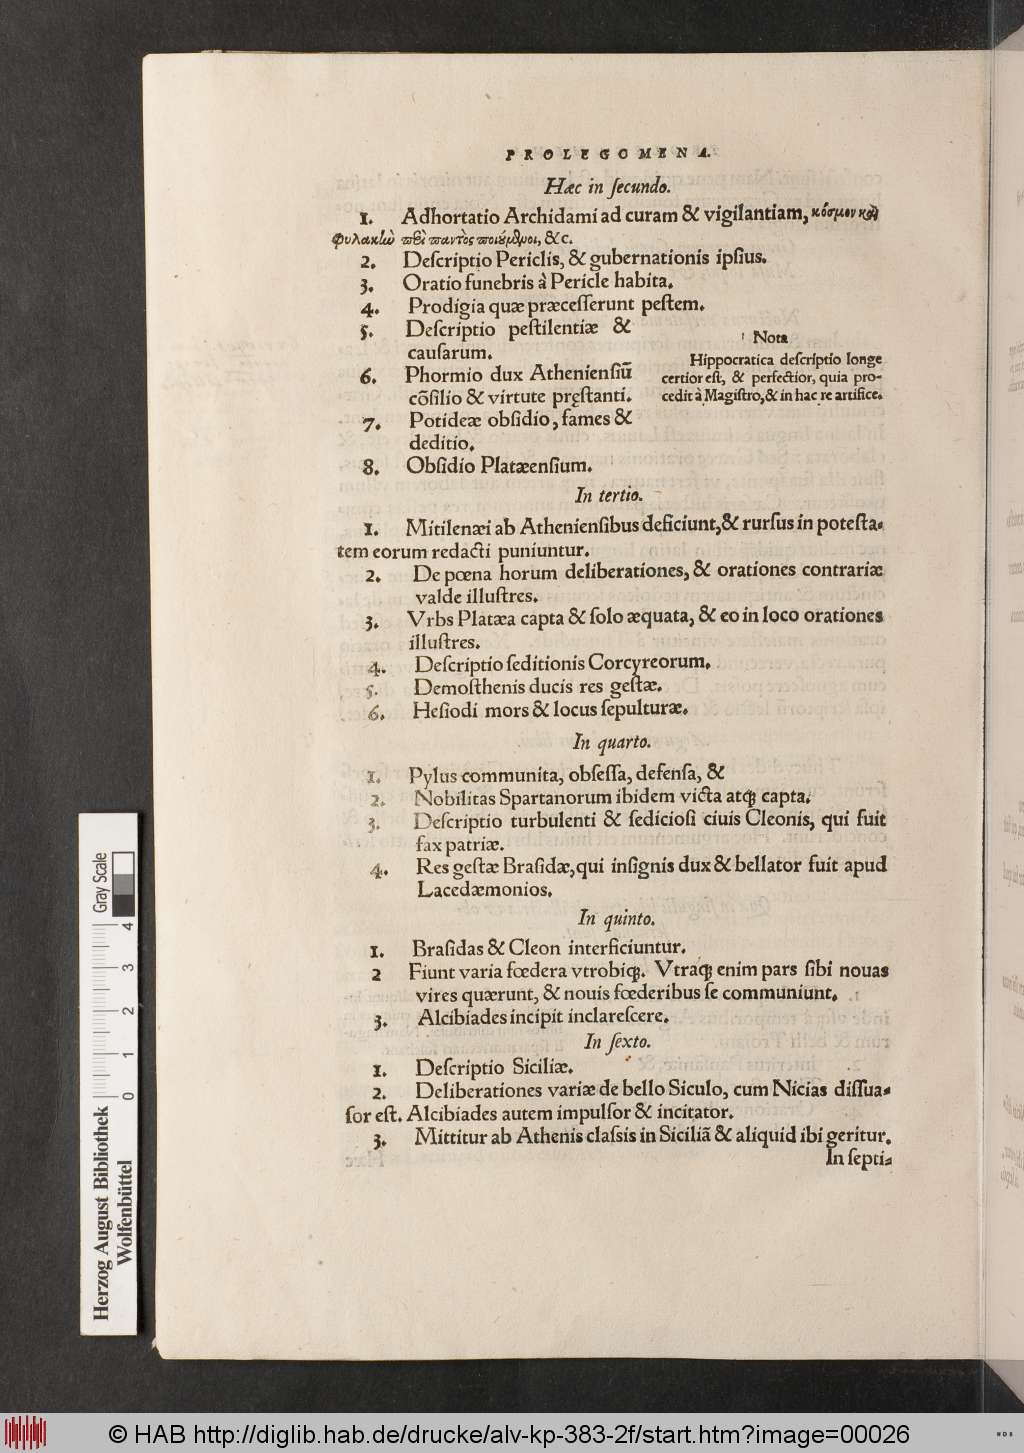 PROLEGOMENA.
Hæc in ſecundo.
1. Adhortatio Archidami ad curam & vigilantiam, κόσμον καὶ
φυλακὴν περὶ παντὸς ποιούμενοι, &c.
2. Deſcriptio Periclis, & gubernationis ipſius.
3. Oratio funebris à Pericle habita.
4. Prodigia quæ præceſſerunt peſtem.
5. Deſcriptio peſtilentiæ &
cauſarum.
6. Phormio dux Athenienſiũ
cõſilio & virtute pręſtanti.
7. Potideæ obſidio, fames &
deditio.
8. Obſidio Platæenſium.
Nota
Hippocratica deſcriptio longe
certior eſt, & perfectior, quia pro-
cedit à Magiſtro, & in hac re artifice.
In tertio.
1. Mitilenæi ab Athenienſibus deficiunt, & rurſus in poteſta-
tem eorum redacti puniuntur.
2. De pœna horum deliberationes, & orationes contrariæ
valde illuſtres.
3. Vrbs Platæa capta & ſolo æquata, & eo in loco orationes
illuſtres.
4. Deſcriptio ſeditionis Corcyreorum.
5. Demoſthenis ducis res geſtæ.
6. Heſiodi mors & locus ſepulturæ.
In quarto.
1. Pylus communita, obſeſſa, defenſa, &
2. Nobilitas Spartanorum ibidem victa atq; capta.
3. Deſcriptio turbulenti & ſedicioſi ciuis Cleonis, qui fuit
fax patriæ.
4. Res geſtæ Braſidæ, qui inſignis dux & bellator fuit apud
Lacedæmonios.
In quinto.
1. Braſidas & Cleon interficiuntur.
2 Fiunt varia fœdera vtrobiq;. Vtraq; enim pars ſibi nouas
vires quærunt, & nouis fœderibus ſe communiunt.
3. Alcibiades incipit inclareſcere.
In ſexto.
1. Deſcriptio Siciliæ.
2. Deliberationes variæ de bello Siculo, cum Nicias diſſua-
ſor eſt. Alcibiades autem impulſor & incitator.
3. Mittitur ab Athenis claſsis in Siciliã & aliquid ibi geritur.
In ſepti-
Herzog August Bibliothek
Wolfenbüttel
0 1 2 3 4
Gray Scale
© HAB http://diglib.hab.de/drucke/alv-kp-383-2f/start.htm?image=00026